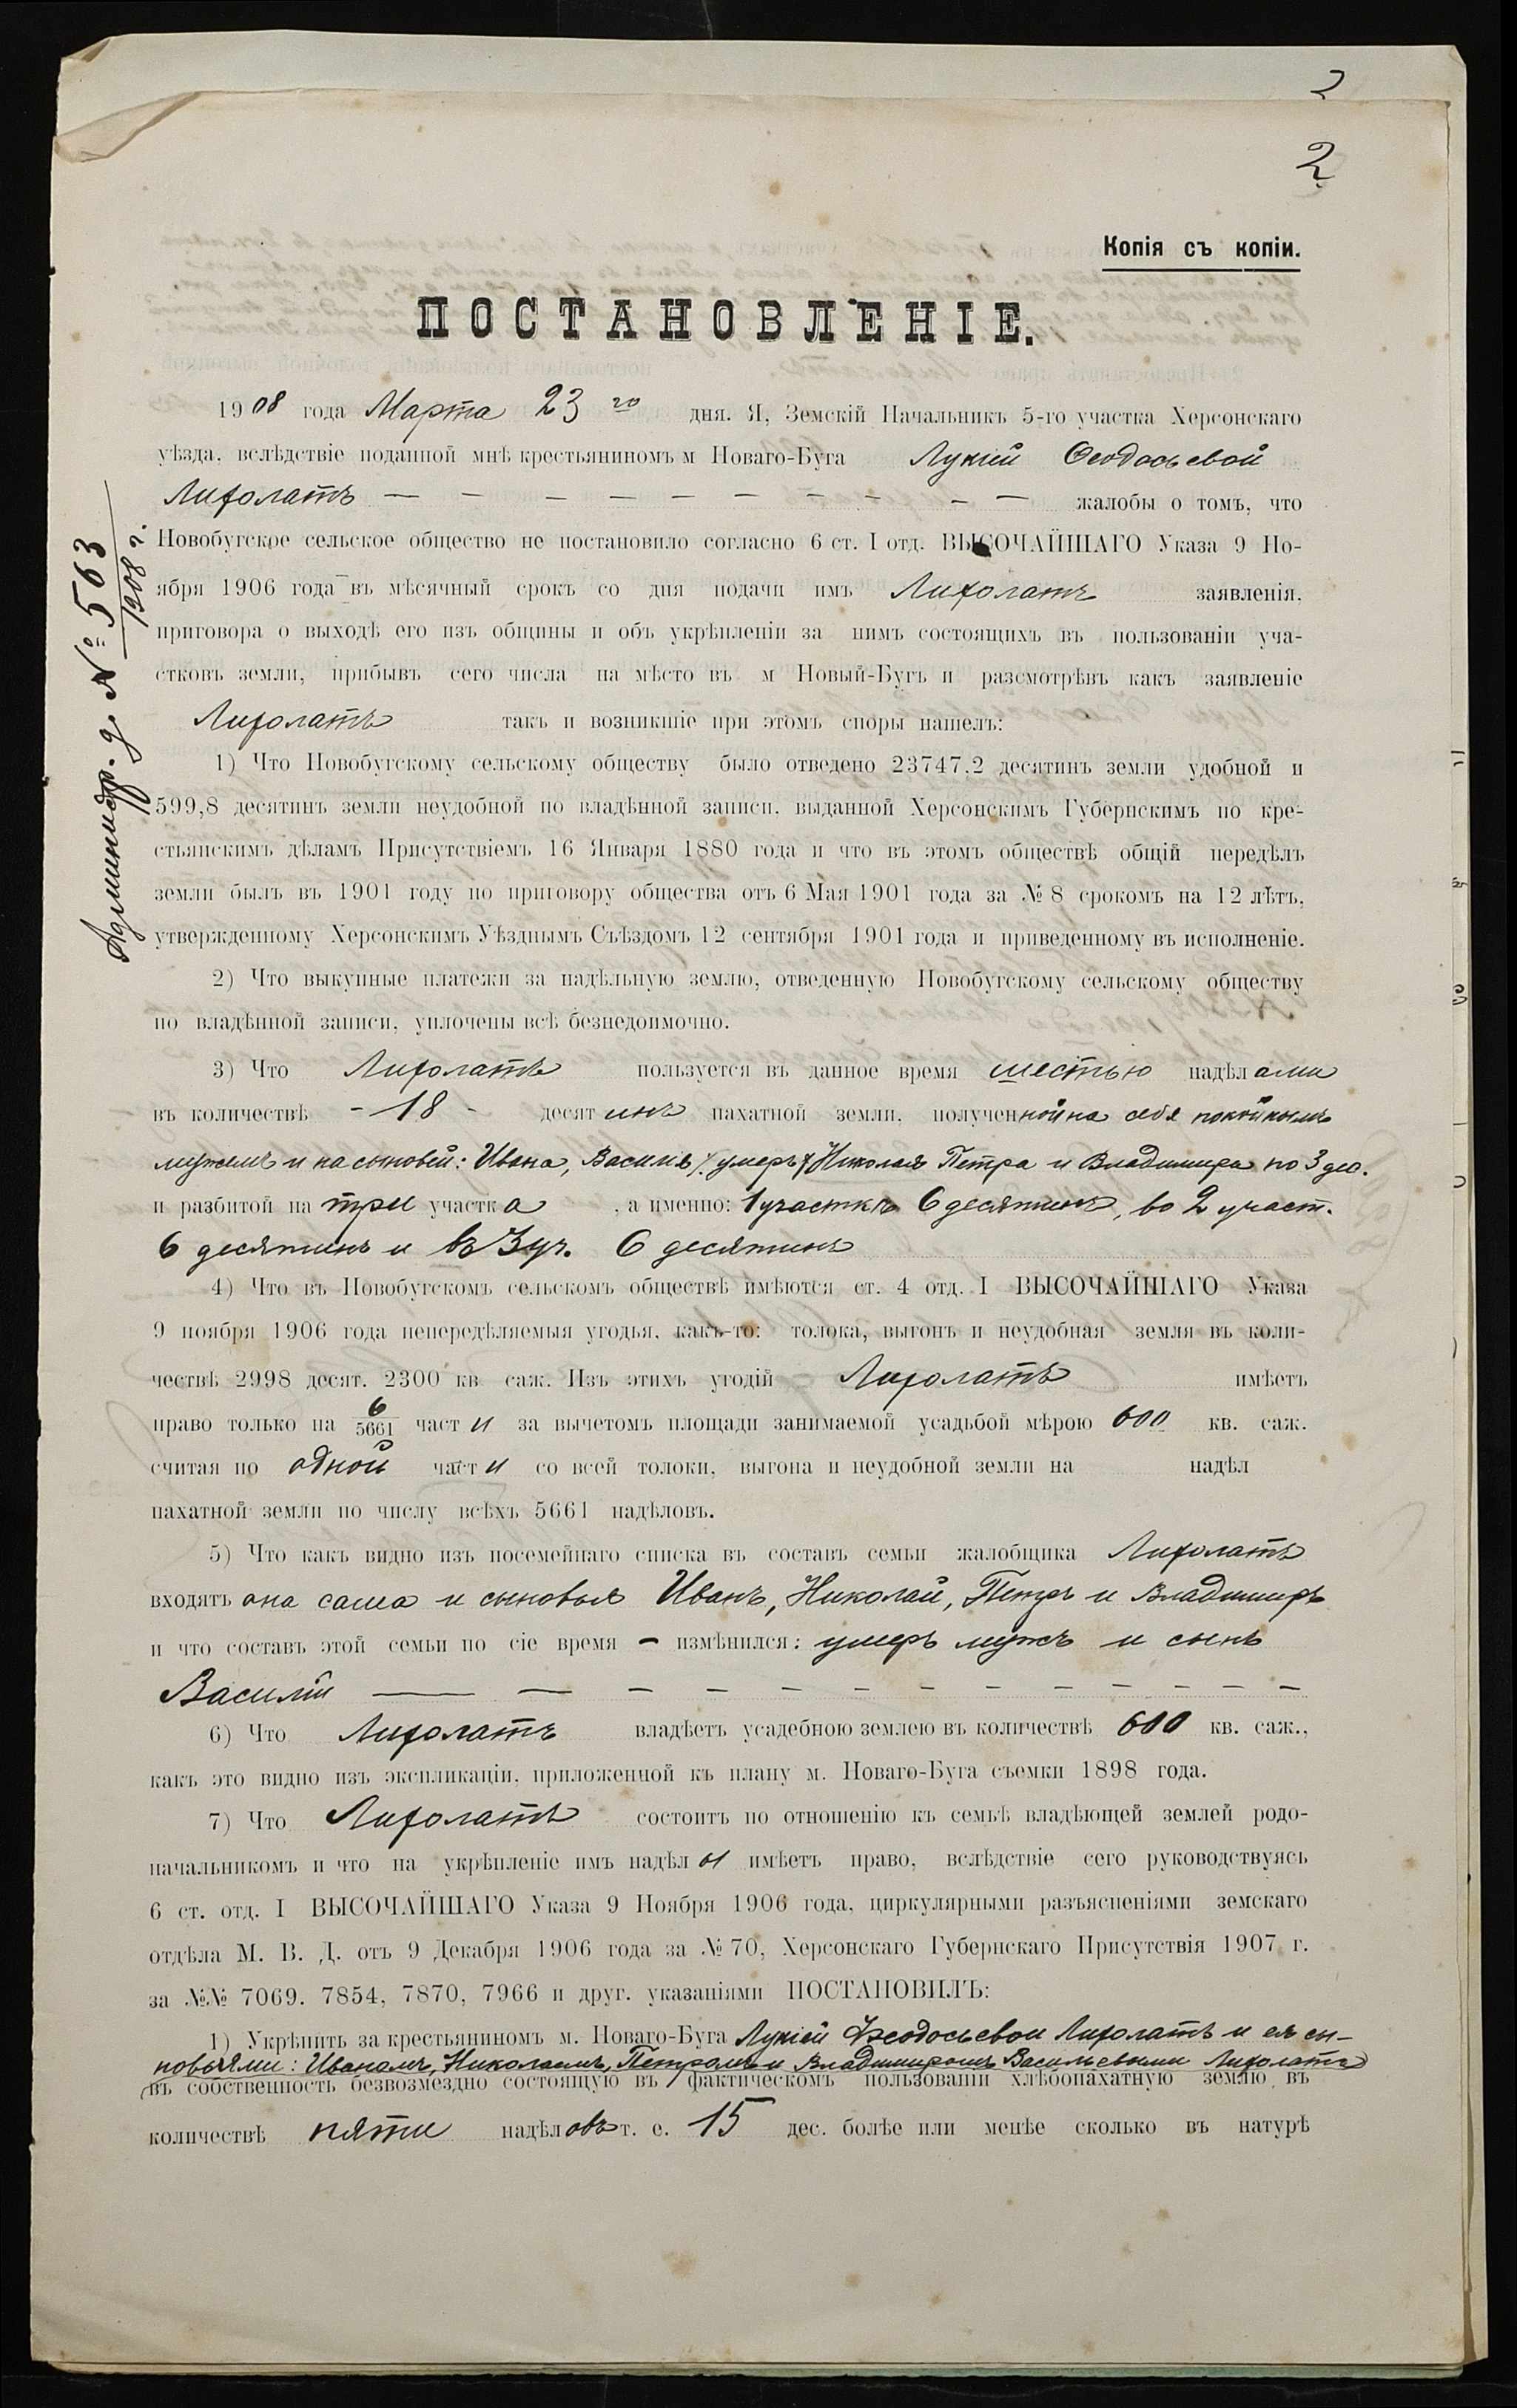 2
2
Копія съ копіи.
ПОСТАНОВЛЕНІЕ.
1908 года Марта 23 го дня. Я, Земскій Начальникъ 5-го участка Херсонскаго
уѣзда, вслѣдствіе поданной мнѣ крестьяниномъ м Новаго-Буга Лукіей Ѳеодосьевой
Лифолатъ — — — — — — — — — — жалобы о томъ, что
Новобугское сельское общество не постановило согласно 6 ст. I отд. ВЫСОЧАЙШАГО Указа 9 Но-
ября 1906 года въ мѣсячный срокъ со дня подачи имъ Лифолатъ заявленія,
приговора о выходѣ его изъ общины и объ укрѣпленіи за нимъ состоящихъ въ пользованіи уча-
стковъ земли, прибывъ сего числа на мѣсто въ м Новый-Бугъ и разсмотрѣвъ какъ заявленіе
Лифолатъ такъ и возникшіе при этомъ споры нашелъ:
Администр. д. № 563
1908 г.
1) Что Новобугскому сельскому обществу было отведено 23747,2 десятинъ земли удобной и
599,8 десятинъ земли неудобной по владѣнной записи, выданной Херсонскимъ Губернскимъ по кре-
стьянскимъ дѣламъ Присутствіемъ 16 Января 1880 года и что въ этомъ обществѣ общій передѣлъ
земли былъ въ 1901 году по приговору общества отъ 6 Мая 1901 года за № 8 срокомъ на 12 лѣтъ,
утвержденному Херсонскимъ Уѣзднымъ Съѣздомъ 12 сентября 1901 года и приведенному въ исполненіе.
2) Что выкупные платежи за надѣльную землю, отведенную Новобугскому сельскому обществу
по владѣнной записи, уплочены всѣ безнедоимочно.
3) Что Лифолатъ пользуется въ данное время шестью надѣлами
въ количествѣ - 18 - десятинъ пахатной земли, полученной на себя покойнымъ
мужемъ и на сыновей: Ивана, Василія /умеръ/ Николая Петра и Владимира по 3 дес.
и разбитой на три участка , а именно: 1 участкѣ 6 десятинъ, во 2 участ.
6 десятинъ и въ 3 уч. 6 десятинъ
4) Что въ Новобугскомъ сельскомъ обществѣ имѣются ст. 4 отд. I ВЫСОЧАЙШАГО Указа
9 ноября 1906 года непередѣляемыя угодья, какъ-то: толока, выгонъ и неудобная земля въ коли-
чествѣ 2998 десят. 2300 кв саж. Изъ этихъ угодій Лифолатъ имѣетъ
право только на 6/5661 части за вычетомъ площади занимаемой усадьбой мѣрою 600 кв. саж.
считая по одной части со всей толоки, выгона и неудобной земли на надѣл
пахатной земли по числу всѣхъ 5661 надѣловъ.
5) Что какъ видно изъ посемейнаго списка въ составъ семьи жалобщика Лифолатъ
входятъ она сама и сыновья Иванъ, Николай, Петръ и Владимиръ
и что составъ этой семьи по сіе время — измѣнился: умеръ мужъ и сынъ
Василій — — — — — — — — — — —
6) Что Лифолатъ владѣетъ усадебною землею въ количествѣ 600 кв. саж.,
какъ это видно изъ экспликаціи, приложенной къ плану м. Новаго-Буга съемки 1898 года.
7) Что Лифолатъ состоитъ по отношенію къ семьѣ владѣющей землей родо-
начальникомъ и что на укрѣпленіе имъ надѣлы имѣетъ право, вслѣдствіе сего руководствуясь
6 ст. отд. I ВЫСОЧАЙШАГО Указа 9 Ноября 1906 года, циркулярными разъясненіями земскаго
отдѣла М. В. Д. отъ 9 Декабря 1906 года за № 70, Херсонскаго Губернскаго Присутствія 1907 г.
за №№ 7069. 7854, 7870, 7966 и друг. указаніями ПОСТАНОВИЛЪ:
1) Укрѣпить за крестьяниномъ м. Новаго-Буга Лукіей Феодосьевой Лифолатъ и ея сы-
новьями: Иваномъ, Николаемъ, Петромъ и Владимиромъ Васильевыми Лифолатъ
въ собственность безвозмездно состоящую въ фактическомъ пользованіи хлѣбопахатную землю въ
количествѣ пяти надѣловъ т. е. 15 дес. болѣе или менѣе сколько въ натурѣ